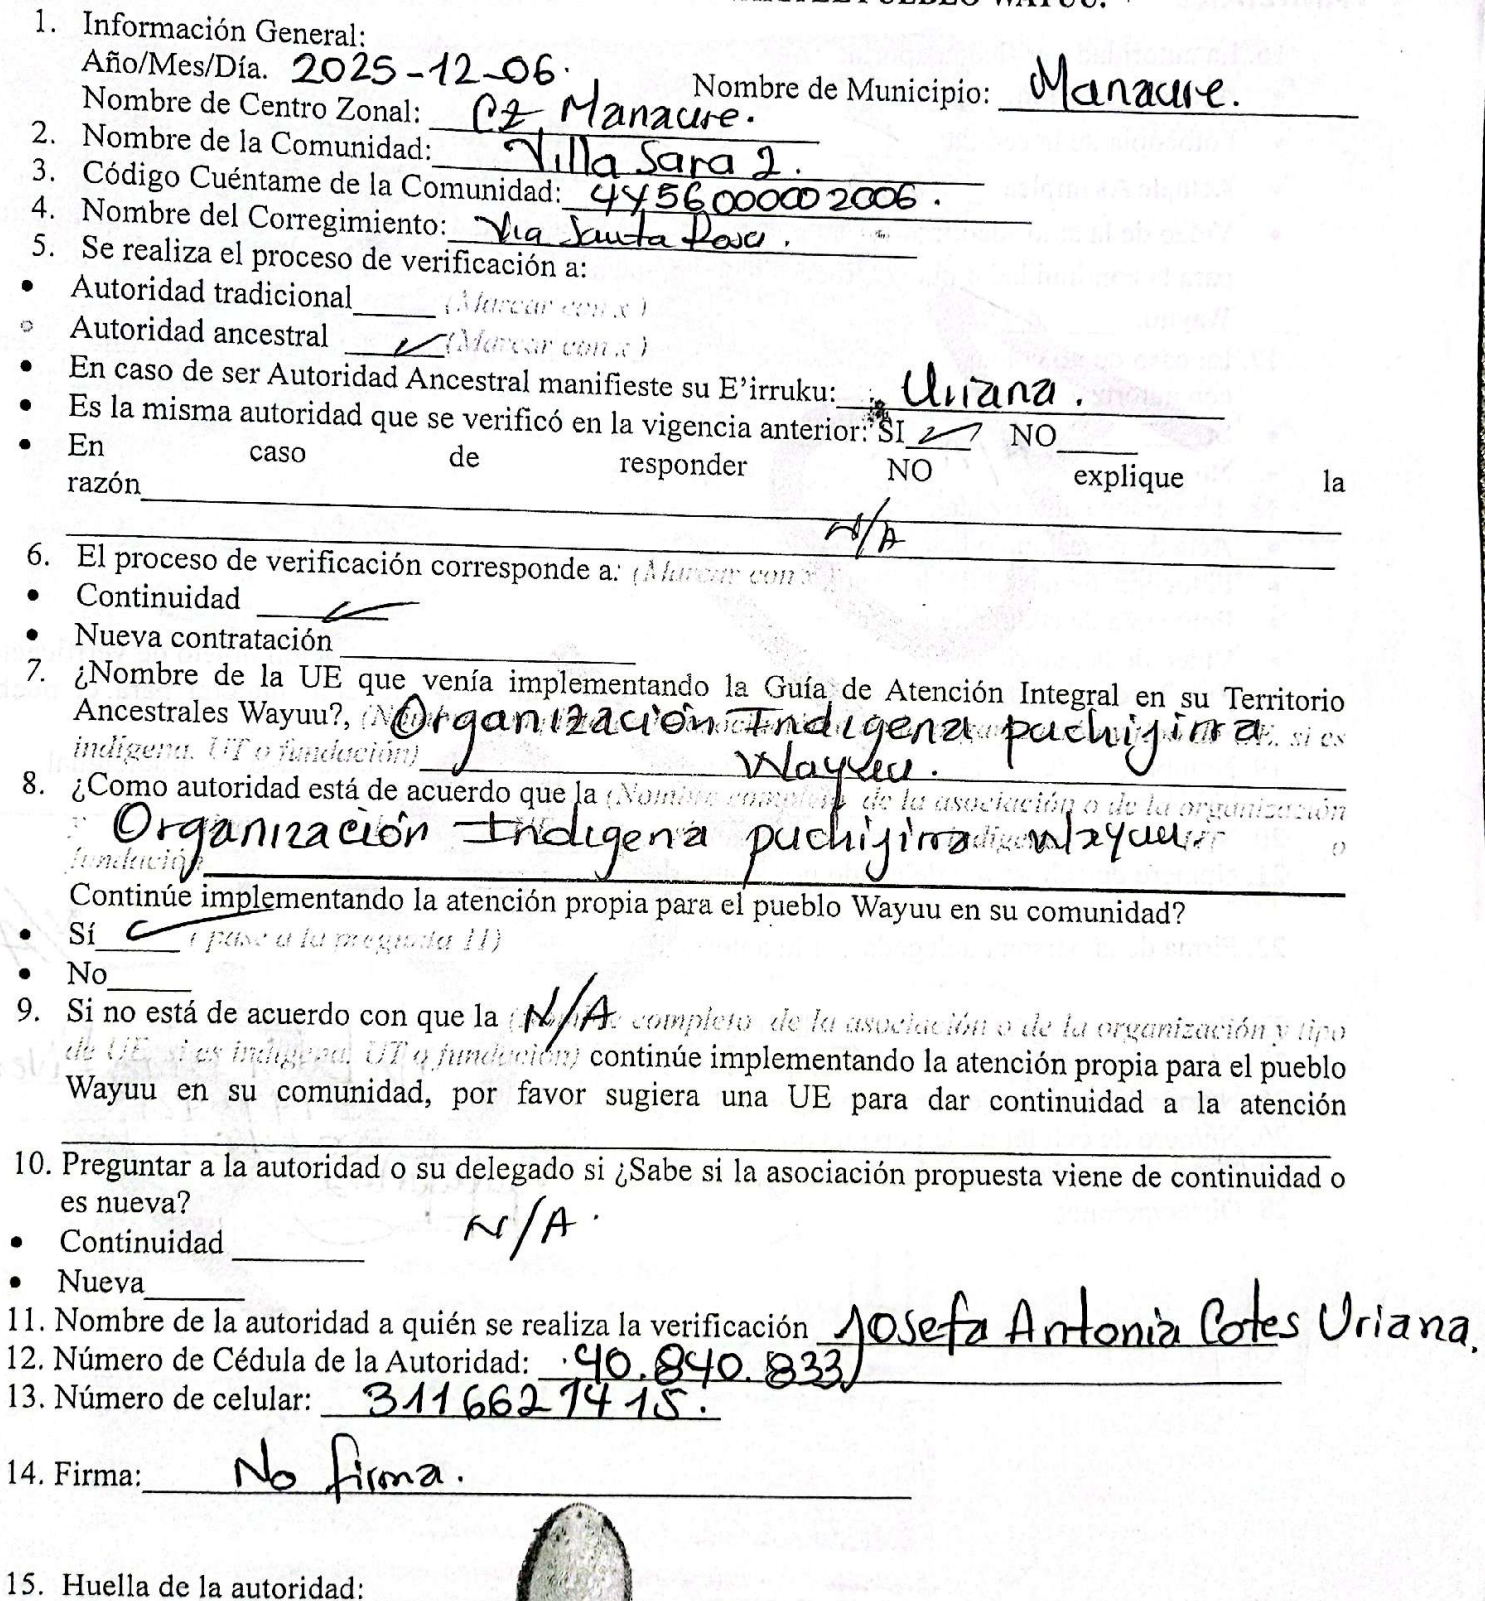 1. Información General:
Año/Mes/Día. 2025-12-06. Nombre de Municipio: Manaure.
Nombre de Centro Zonal: CZ Manaure.
2. Nombre de la Comunidad: Villa Sara 2.
3. Código Cuéntame de la Comunidad: 4456000002006.
4. Nombre del Corregimiento: Via Santa Rosa.
5. Se realiza el proceso de verificación a:
• Autoridad tradicional____ (Marcar con x )
• Autoridad ancestral ✓ (Marcar con x )
• En caso de ser Autoridad Ancestral manifieste su E'irruku: Uriana.
• Es la misma autoridad que se verificó en la vigencia anterior: SI ✓ NO____
• En caso de responder NO explique la
razón
N/A
6. El proceso de verificación corresponde a: (Marcar con x )
• Continuidad ✓
• Nueva contratación
7. ¿Nombre de la UE que venía implementando la Guía de Atención Integral en su Territorio
Ancestrales Wayuu?, Organización Indigena puchijirra UE, si es
indígena, UT o fundación) Wayuu.
8. ¿Como autoridad está de acuerdo que la (Nombre completo de la asociación o de la organización
Organización Indigena puchijirra Wayuu o
fundación
Continúe implementando la atención propia para el pueblo Wayuu en su comunidad?
• Sí ✓ ( pase a la pregunta 11)
• No____
9. Si no está de acuerdo con que la N/A completo de la asociación o de la organización y tipo
de UE, si es indígena, UT o fundación) continúe implementando la atención propia para el pueblo
Wayuu en su comunidad, por favor sugiera una UE para dar continuidad a la atención
10. Preguntar a la autoridad o su delegado si ¿Sabe si la asociación propuesta viene de continuidad o
es nueva?
N/A.
• Continuidad
• Nueva
11. Nombre de la autoridad a quién se realiza la verificación Josefa Antonia Cotes Uriana.
12. Número de Cédula de la Autoridad: 40.840.833
13. Número de celular: 3116627415.
14. Firma: No firma.
15. Huella de la autoridad: